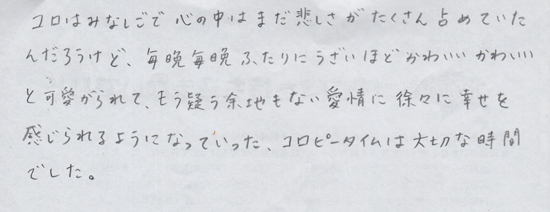 コロはみなしごで心の中はまだ悲しさがたくさん占めていた
んだろうけど、毎晩毎晩ふたりにうざいほどかわいいかわいい
と可愛がられて、もう疑う余地もない愛情に徐々に幸せを
感じられるようになっていった、コロピータイムは大切な時間
でした。